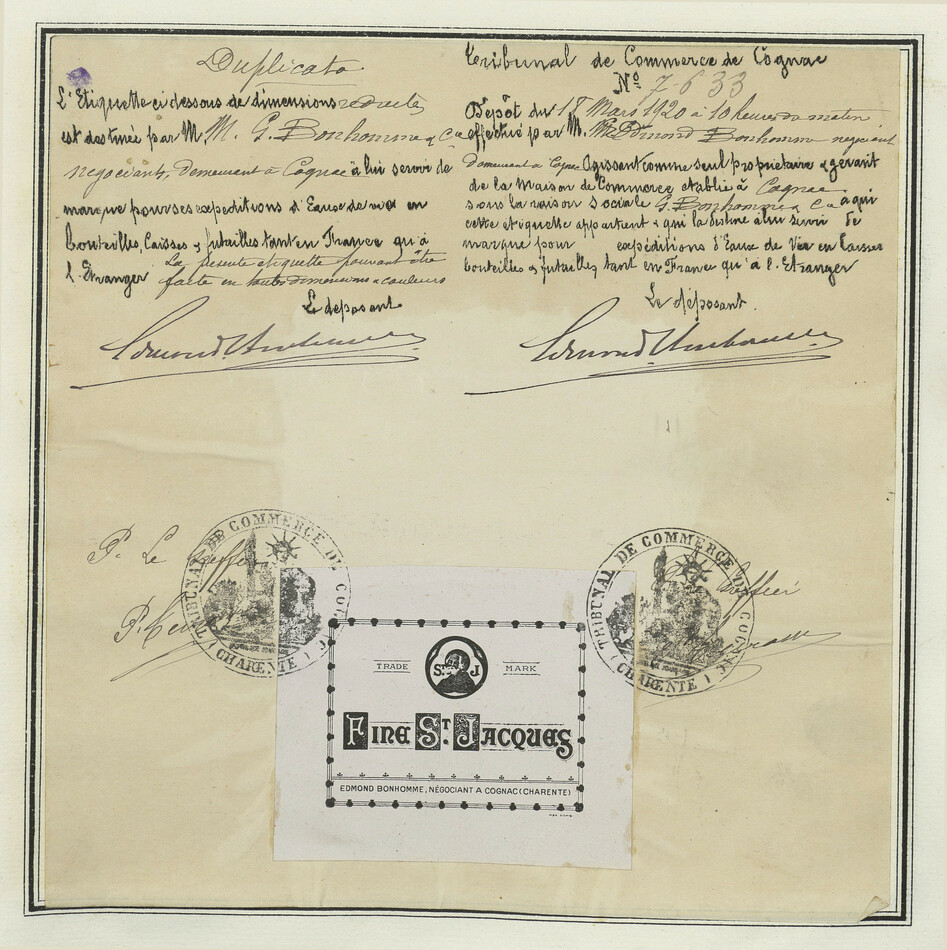 Duplicata
L'Etiquette ci dessous de dimensions reduites
est destinée par M. M. G. Bonhomme & Cie
négociants, demeurant à Cognac à lui servir de
marque pour ses expeditions d'Eaux de vie en
bouteilles, Caisses & futailles tant en France qu'à
l'Etranger La présente etiquette pouvant être
faite en toutes dimensions & couleurs
Le déposant
Tribunal de Commerce de Cognac
Nº 7633
Dépôt du 18 Mars 1920 à 10 heures du matin
effectué par M. Edmond Bonhomme négociant
demeurant à Cognac Agissant comme seul propriétaire & gérant
de la Maison de Commerce etablie à Cognac
sous la raison sociale G. Bonhomme & Cie a qui
cette etiquette appartient & qui la destine à lui servir de
marque pour expéditions d'Eaux de Vie en Caisses
bouteilles & futailles tant en France qu'à l'Etranger
Le déposant.
P. Le Greffier
TRIBUNAL DE COMMERCE DE COGNAC
(CHARENTE)
Greffier
TRIBUNAL DE COMMERCE DE COGNAC
(CHARENTE)
TRADE MARK
ST J
FINE ST. JACQUES
EDMOND BONHOMME, NÉGOCIANT A COGNAC (CHARENTE)